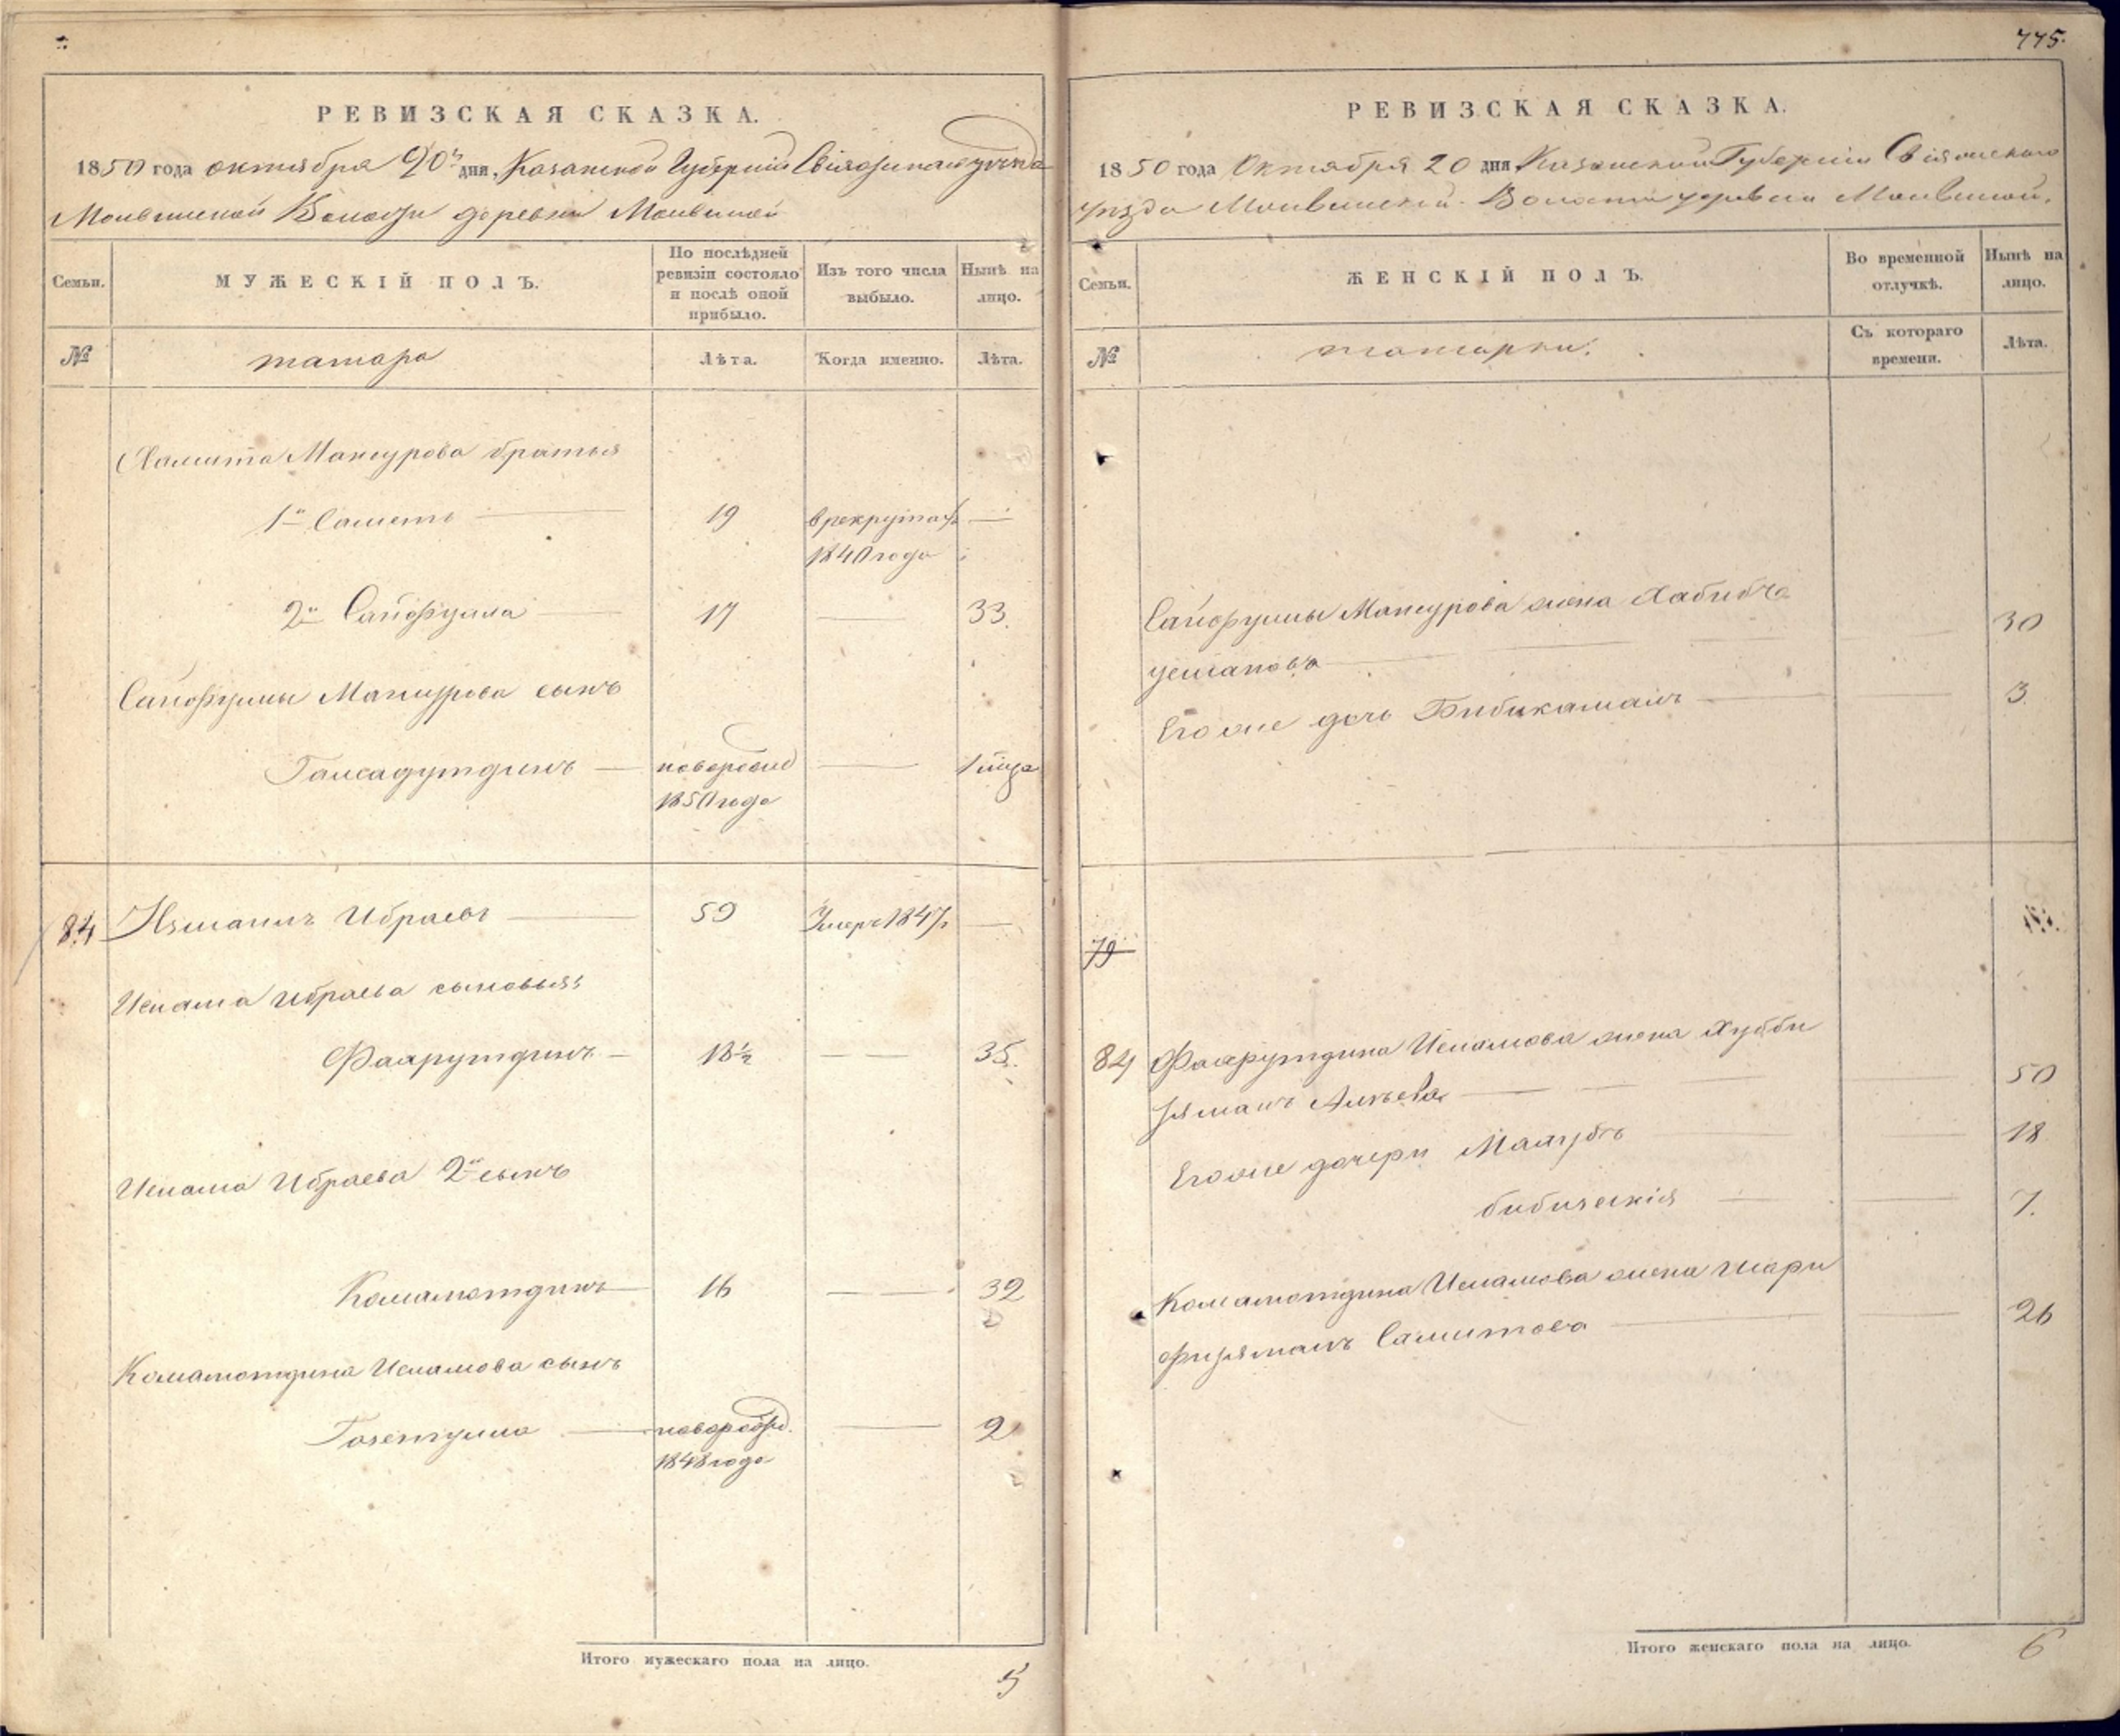 775.
РЕВИЗСКАЯ СКАЗКА.
1850 года октября 20 дня, Казанской Губернии Свіяжскаго уѣзда
Волости деревни
Семьи.
МУЖЕСКІЙ ПОЛЪ.
По послѣдней ревизіи состояло и послѣ оной прибыло.
Изъ того числа выбыло.
Нынѣ на лицо.
№
татара
Лѣта.
Когда именно.
Лѣта.
Хамита Мансурова братья
1й Саметъ 19 в рекрутахъ
1840 года
2й Сайфулла 17 33.
Сайфуллы Мансурова сынъ
новорожд 1 мца
1850 года
84 Ибраевъ 59 Умеръ 1847
Ислама Ибраева сыновья:
Фахрутдинъ 18½ 35.
Ислама Ибраева 2й сынъ
Камалютдинъ 16 32
Камалютдина Исламова сынъ
новорожд. 2
1848 года
Итого мужескаго пола на лицо. 5
РЕВИЗСКАЯ СКАЗКА.
1850 года Октября 20 дня Казанской Губерніи Свіяжскаго
уѣзда Волости деревни
Семьи.
ЖЕНСКІЙ ПОЛЪ.
Во временной отлучкѣ.
Нынѣ на лицо.
№
татарки.
Съ котораго времени.
Лѣта.
Сайфуллы Мансурова жена Хабибча
30
Его же дочь Бибикамалъ 3.
79
84 Фахрутдина Исламова жена Хубби
50
Его же дочери 18
7.
Камалютдина Исламова жена Шари
Самитова 26
Итого женскаго пола на лицо. 6